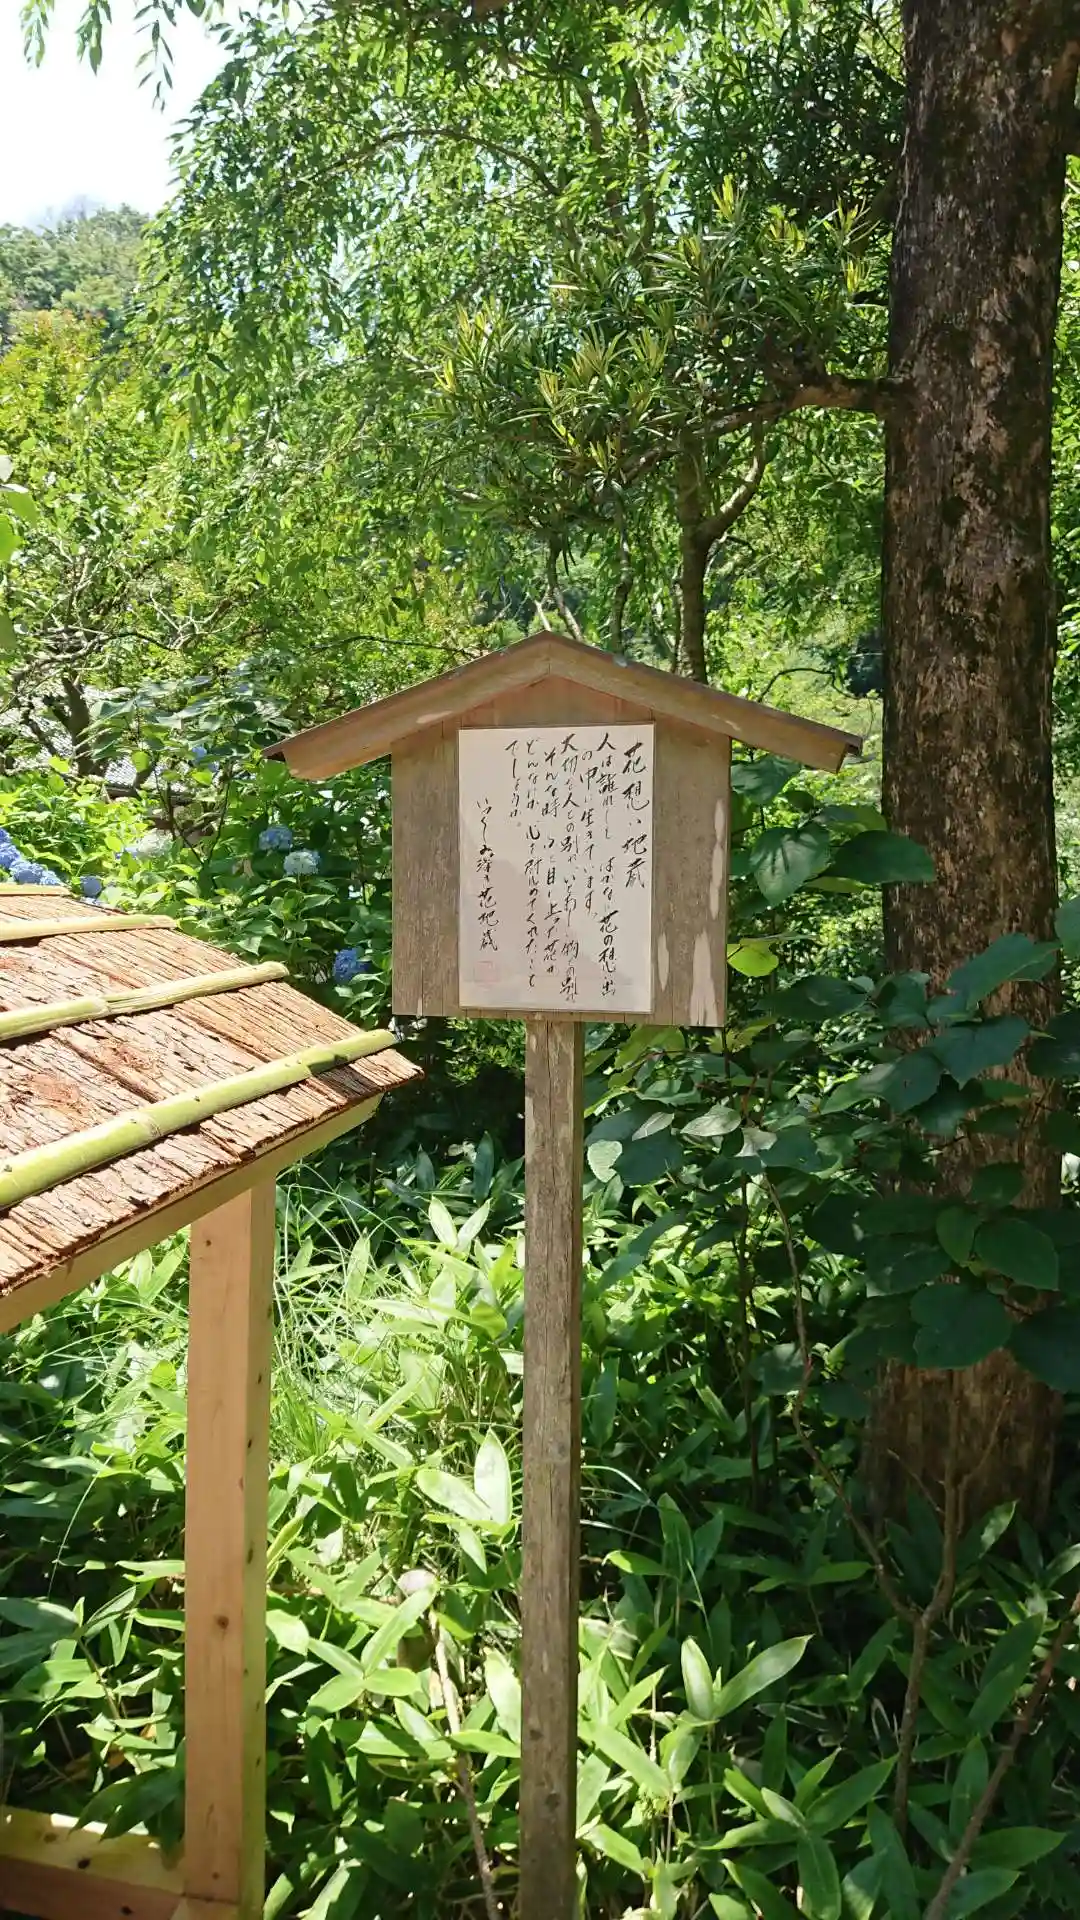 花想い地蔵
人は誰れしも はかない花の想い出
の中に生きています。
大切な人との別れ、いとおしい物との別れ
そんな時 ふと目に止った花が
どんなにか 心を慰めてくれたこと
でしょうか。
いつくしみ深き 花地蔵